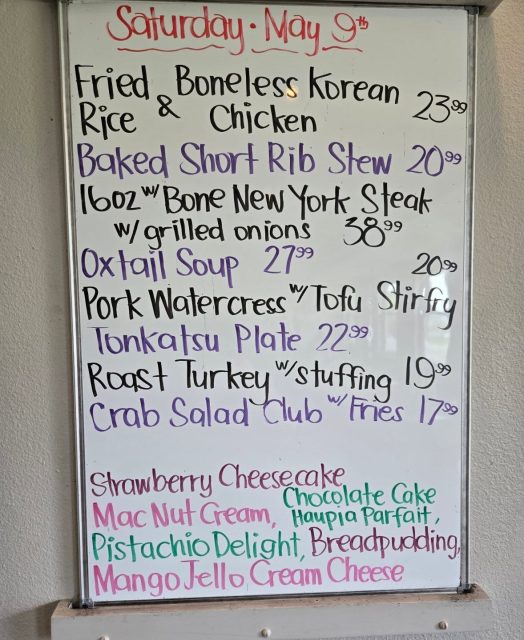 Saturday • May 9th
Fried Boneless Korean 23.99
Rice & Chicken
Baked Short Rib Stew 20.99
16oz w/ Bone New York Steak
w/ grilled onions 38.99
Oxtail Soup 27.99 20.99
Pork Watercress w/ Tofu Stirfry
Tonkatsu Plate 22.99
Roast Turkey w/ stuffing 19.99
Crab Salad Club w/ Fries 17.99
Strawberry Cheesecake
Chocolate Cake
Mac Nut Cream, Haupia Parfait,
Pistachio Delight, Breadpudding,
Mango Jello Cream Cheese